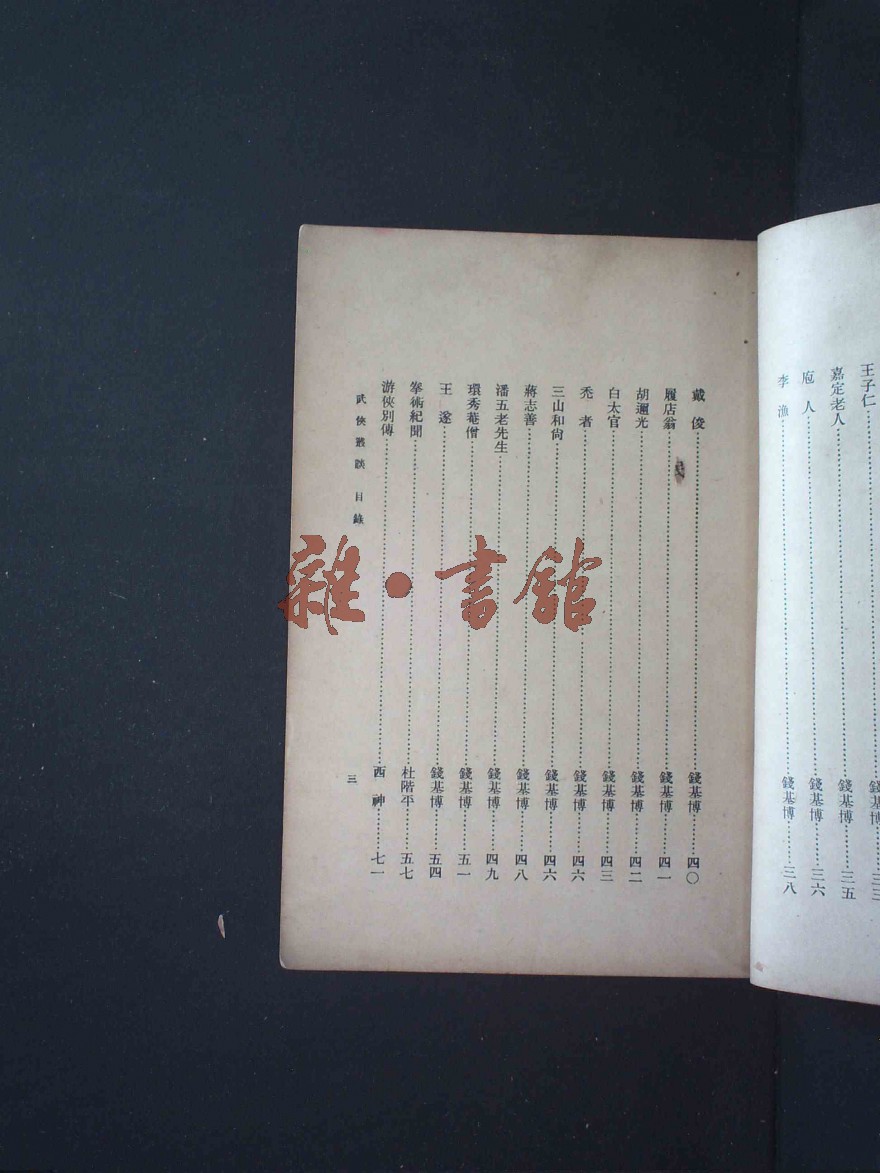 王子仁……錢基博……三三
嘉定老人……錢基博……三五
庖人……錢基博……三六
李漁……錢基博……三八
戴俊……錢基博……四〇
履店翁……錢基博……四一
胡邇光……錢基博……四二
白太官……錢基博……四三
禿者……錢基博……四六
三山和尙……錢基博……四六
蔣志善……錢基博……四八
潘五老先生……錢基博……四九
環秀菴僧……錢基博……五一
王遂……錢基博……五四
拳術紀聞……杜階平……五七
游俠別傳……西神……七一
武俠叢談 目錄 三
雜·書館